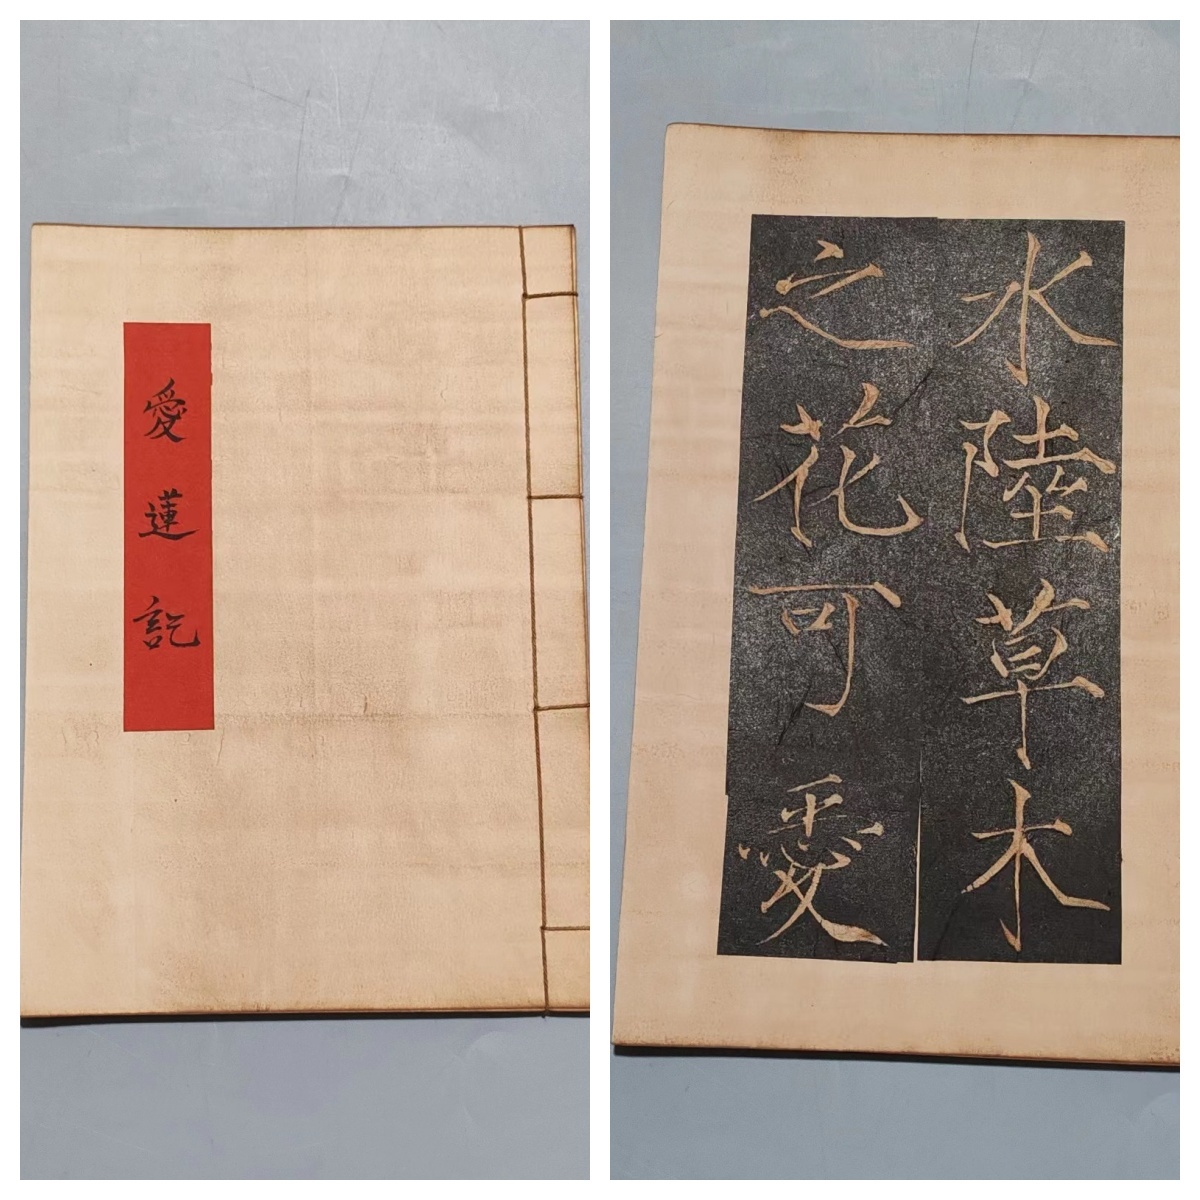 愛蓮訖
水陸草木
之花可愛